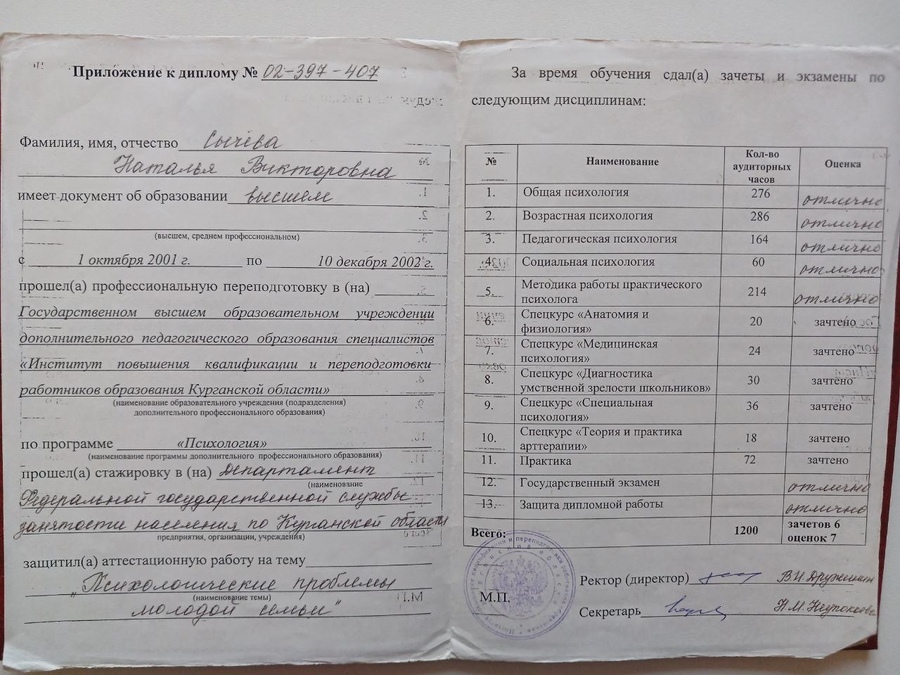 Приложение к диплому № 02-397-407
Фамилия, имя, отчество Сычёва
Наталья Викторовна
имеет документ об образовании высшем
(высшем, среднем профессиональном)
с 1 октября 2001 г. по 10 декабря 2002 г.
прошел(а) профессиональную переподготовку в (на)
Государственном высшем образовательном учреждении
дополнительного педагогического образования специалистов
«Институт повышения квалификации и переподготовки
работников образования Курганской области»
(наименование образовательного учреждения (подразделения)
дополнительного профессионального образования)
по программе «Психология»
(наименование программы дополнительного профессионального образования)
прошел(а) стажировку в (на) Департамент
(наименование
Федеральной государственной службы
занятости населения по Курганской области
предприятия, организации, учреждения)
защитил(а) аттестационную работу на тему
"Психологические проблемы
(наименование темы)
молодой семьи"
За время обучения сдал(а) зачеты и экзамены по
следующим дисциплинам:
№ Наименование Кол-во аудиторных часов Оценка
1. Общая психология 276 отлично
2. Возрастная психология 286 отлично
3. Педагогическая психология 164 отлично
4. Социальная психология 60 отлично
5. Методика работы практического
психолога 214 отлично
6. Спецкурс «Анатомия и
физиология» 20 зачтено
7. Спецкурс «Медицинская
психология» 24 зачтено
8. Спецкурс «Диагностика
умственной зрелости школьников» 30 зачтено
9. Спецкурс «Специальная
психология» 36 зачтено
10. Спецкурс «Теория и практика
арттерапии» 18 зачтено
11. Практика 72 зачтено
12. Государственный экзамен отлично
13. Защита дипломной работы отлично
Всего: 1200 зачетов 6
оценок 7
Ректор (директор) В.И.Дружинин
М.П.
Секретарь Н.М.